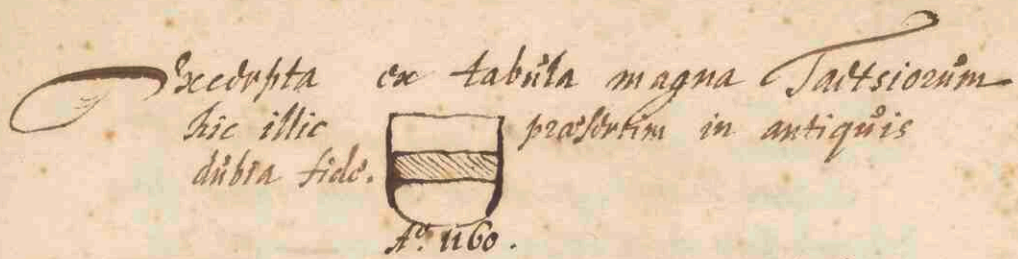 Excerpta ex tabula magna Taetsiorum
hic illic præsertim in antiquis
dubia fide.
Aº. 1160.